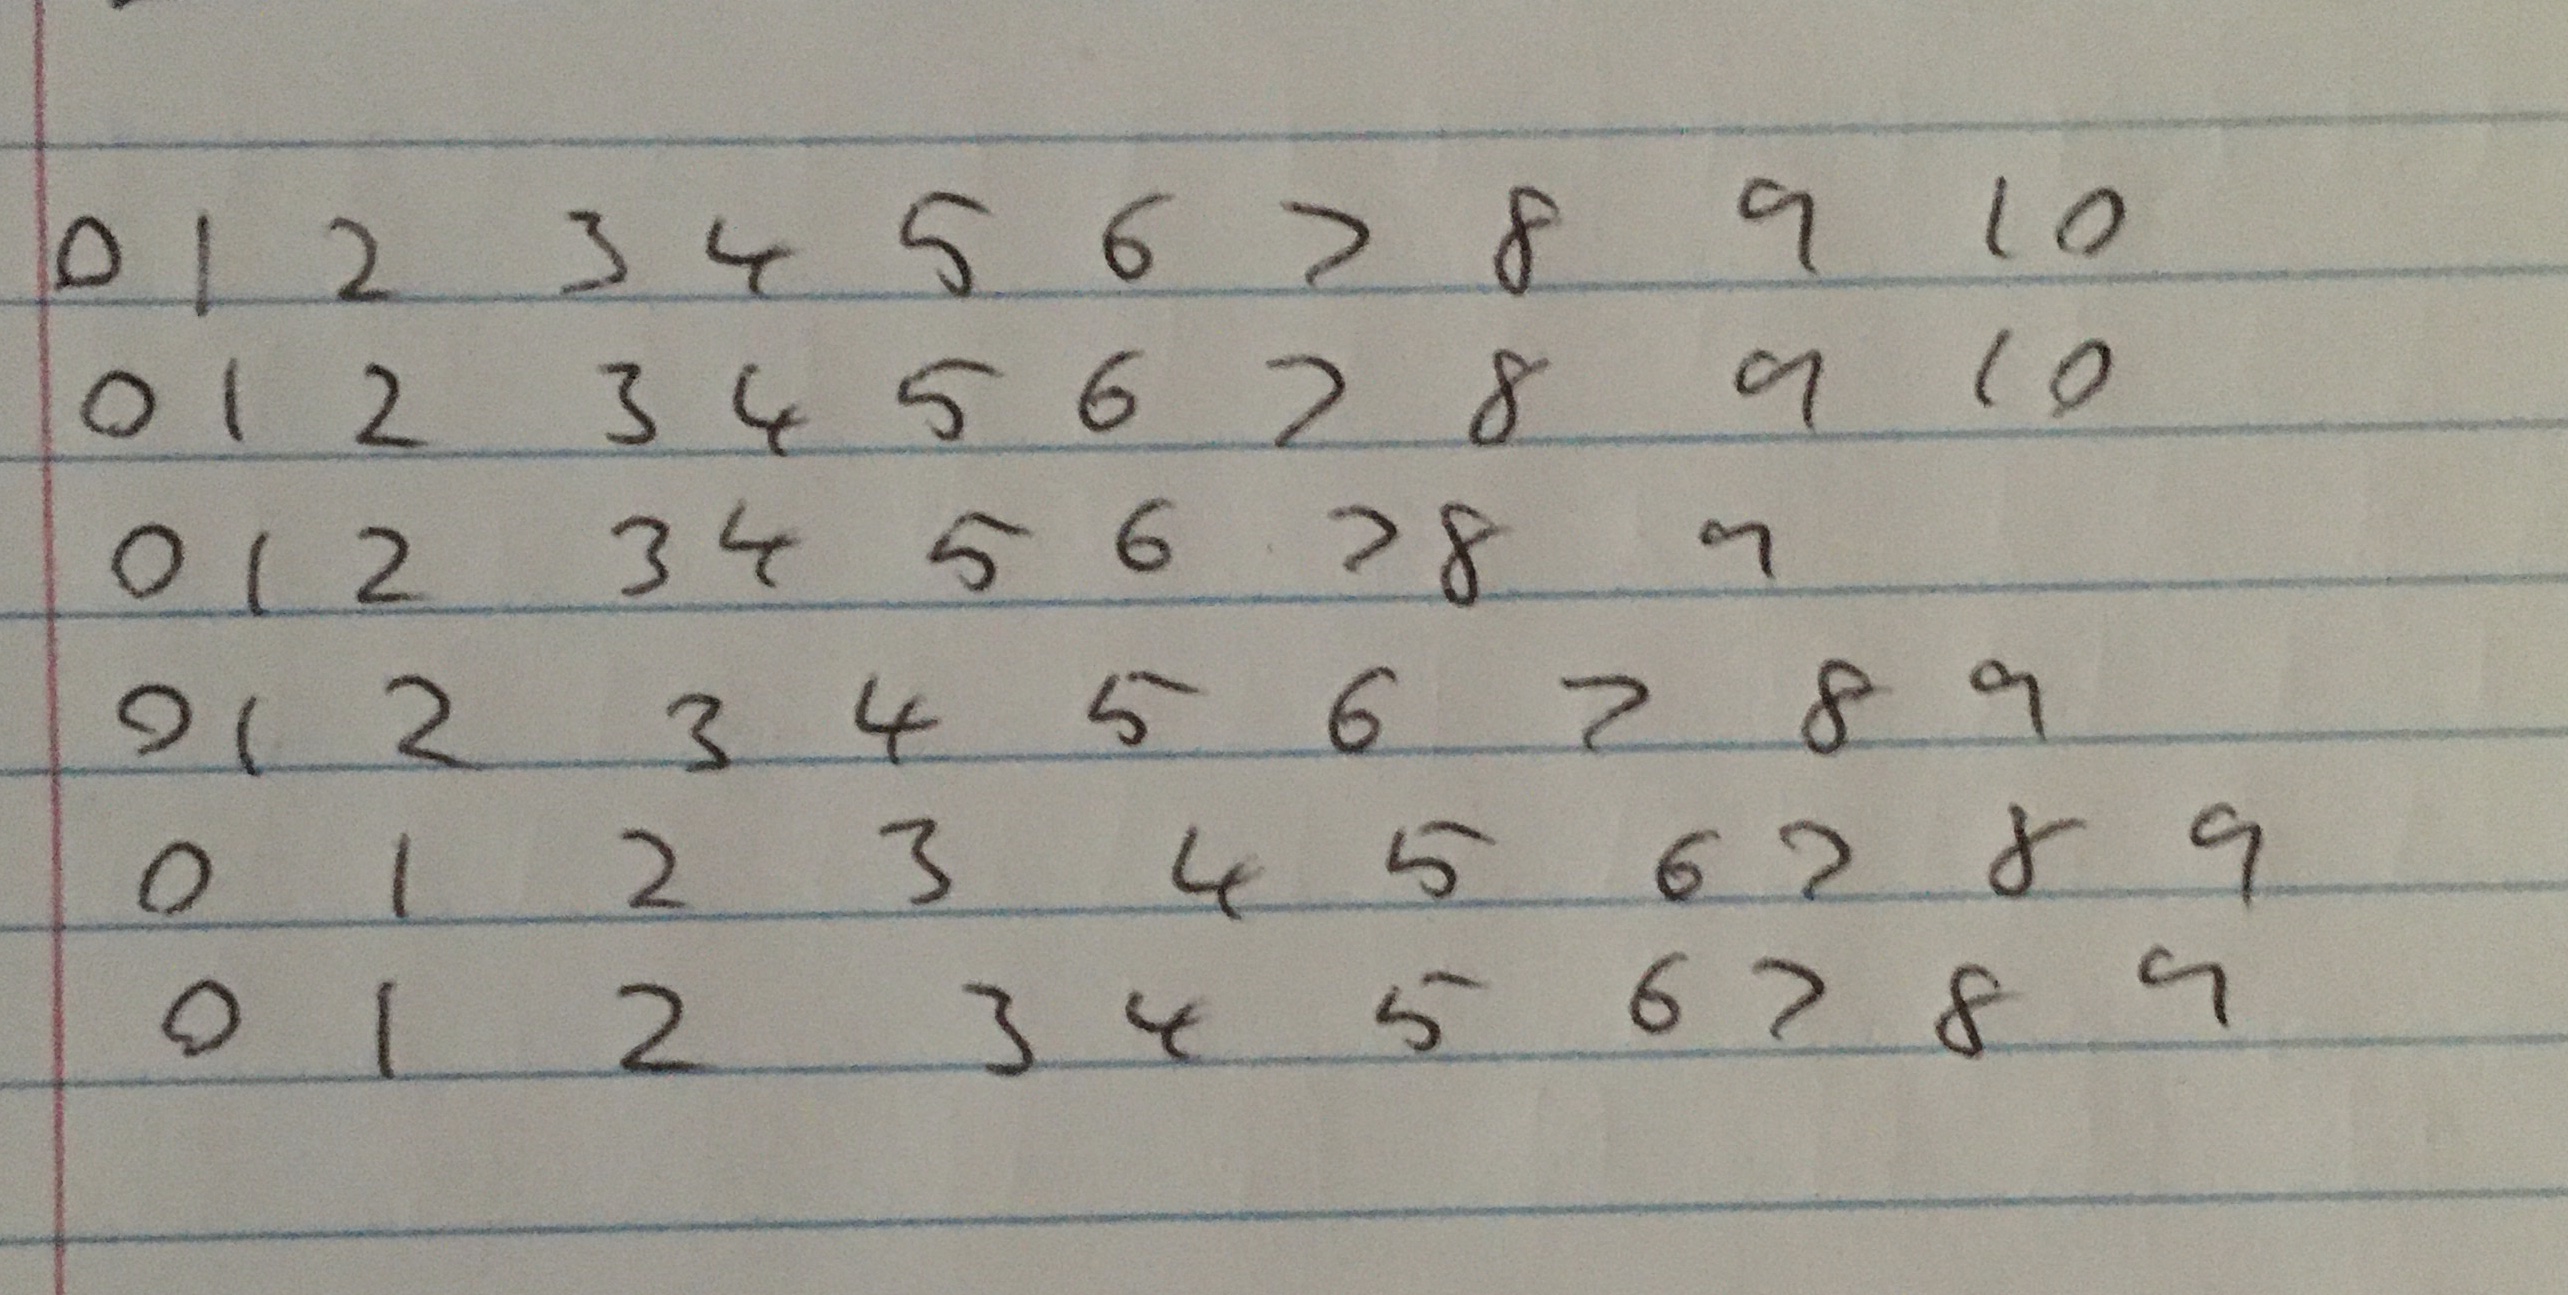 0 1 2 3 4 5 6 7 8 9 10
0 1 2 3 4 5 6 7 8 9 10
0 1 2 3 4 5 6 7 8 9
0 1 2 3 4 5 6 7 8 9
0 1 2 3 4 5 6 7 8 9
0 1 2 3 4 5 6 7 8 9